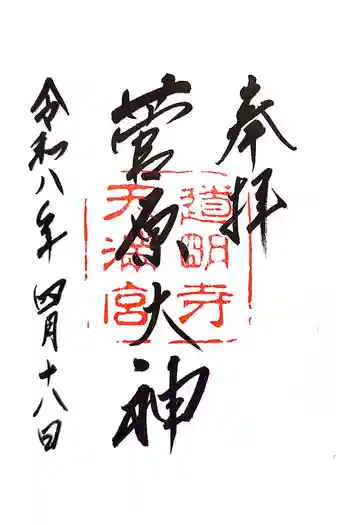 奉拝
道明寺
天満宮
菅原大神
令和八年 四月十八日